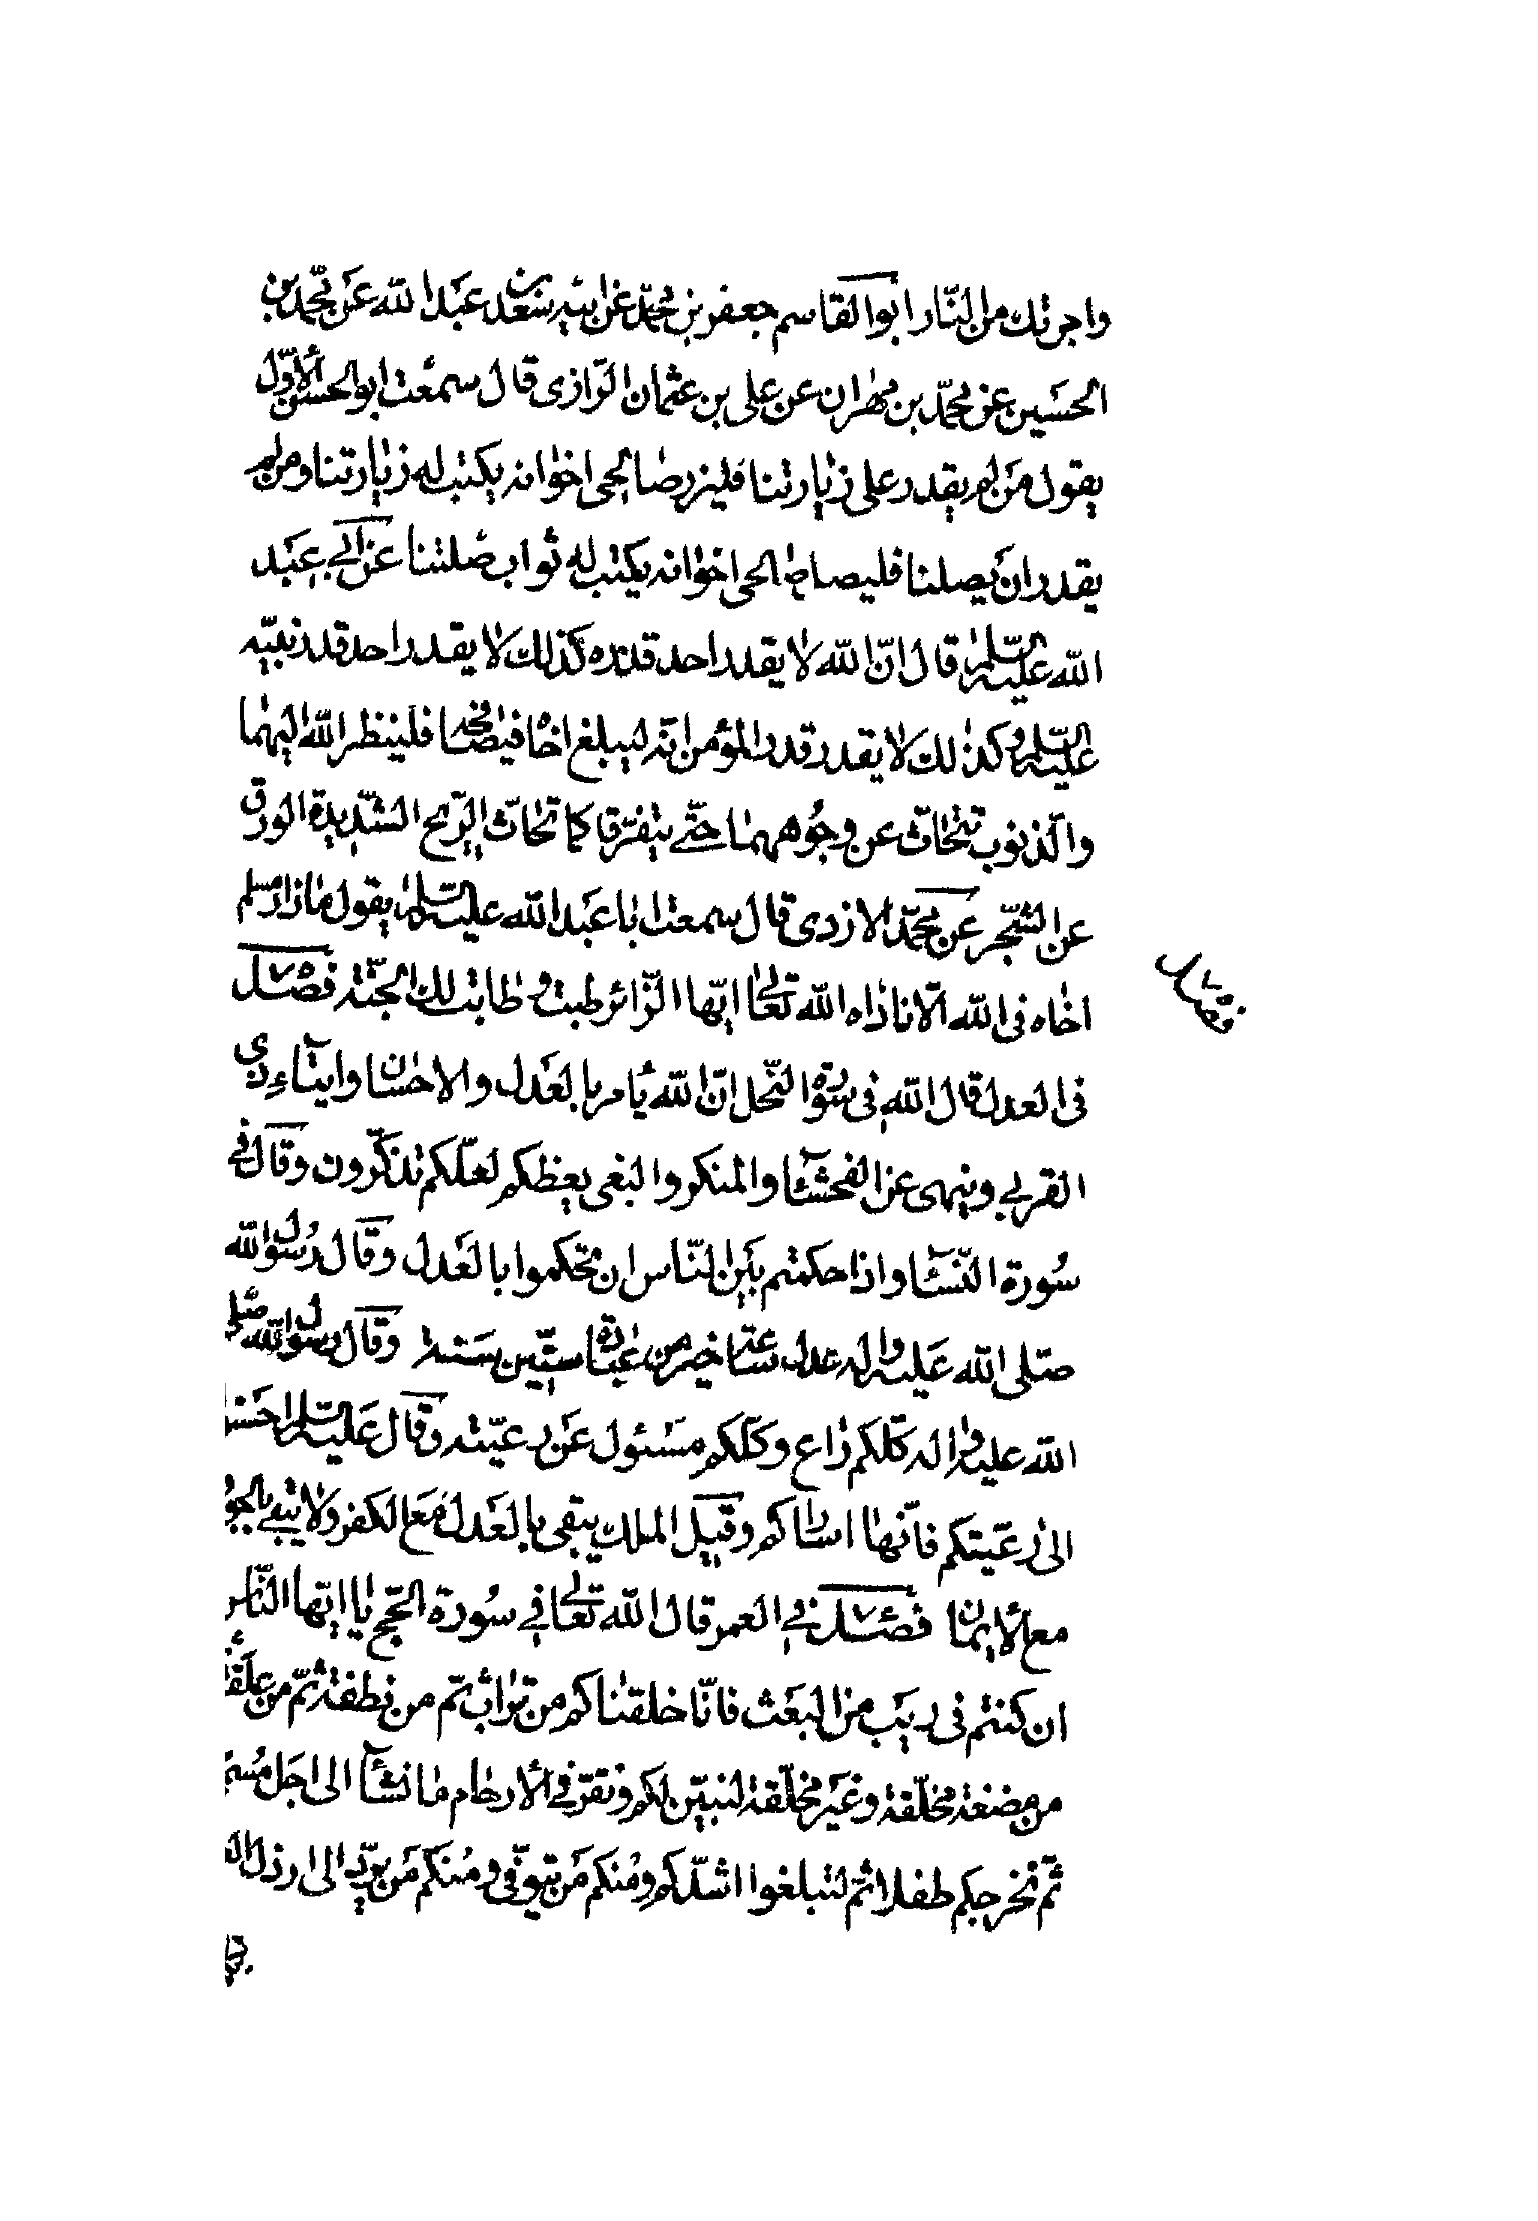 واجرتك من النّار ابوالقاسم جعفر بن محمّد عن ابيه عن سعد بن عبد الله عن محمّد بن
الحسين عن محمّد بن مهران عن على بن عثمان الرّازى قال سمعت ابو الحسن الأوّل
يقول من لم يقدر على زيارتنا فليزر صالحى اخوانه يكتب له زيارتنا ومن لم
يقدر ان يصلنا فليصل صالحى اخوانه يكتب له ثواب صلتنا عن ابى عبد
الله عليه السّلام قال انّ الله لا يقدر احد قدره كذلك لا يقدر احد قدر نبيّه
عليه السّلم وكذلك لا يقدر قدر المؤمن انّه ليبلغ اخاه فيصافحه فلينظر الله اليهما
والذّنوب تتحاتّ عن وجوههما حتّى يتفرّقا كما تحاتّ الرّيح الشّديدة الورق
عن الشّجر عن محمّد الازدى قال سمعت ابا عبد الله عليه السّلم يقول ما زار مسلم
اخاه فى الله الّا ناداه الله تعالى ايّها الزّائر طبت وطابت لك الجنّة فصل
فصل
فى العدل قال الله فى سورة النّحل انّ الله يأمر بالعدل والاحسان وايتآء ذى
القربى وينهى عن الفحشآء والمنكر والبغى يعظكم لعلّكم تذكّرون وقال فى
سورة النّسآء واذا حكمتم بين النّاس ان تحكموا بالعدل وقال رسول الله
صلى الله عليه واله عدل ساعة خير من عبادة ستّين سنة وقال رسول الله صلى
الله عليه واله كلّكم راع وكلّكم مسئول عن رعيّته وقال عليه السّلم احسنوا
الى رعيّتكم فانّها اساراكم وقيل الملك يبقى بالعدل مع الكفر ولا يبقى بالجور
مع الأيمان فصل فى العمر قال الله تعالى فى سورة الحّج يا ايّها النّاس
ان كنتم فى ريب من البعث فانّا خلقناكم من تراب ثمّ من نطفة ثمّ من علقة
من مضغة مخلّقة وغير مخلّقة لنبيّن لكم ونقرّ فى الأرحام ما نشآء الى اجل
ثمّ نخرجكم طفلا ثم لتبلغوا اشدّكم ومنكم من يتوفّى ومنكم من يردّ الى ارذل